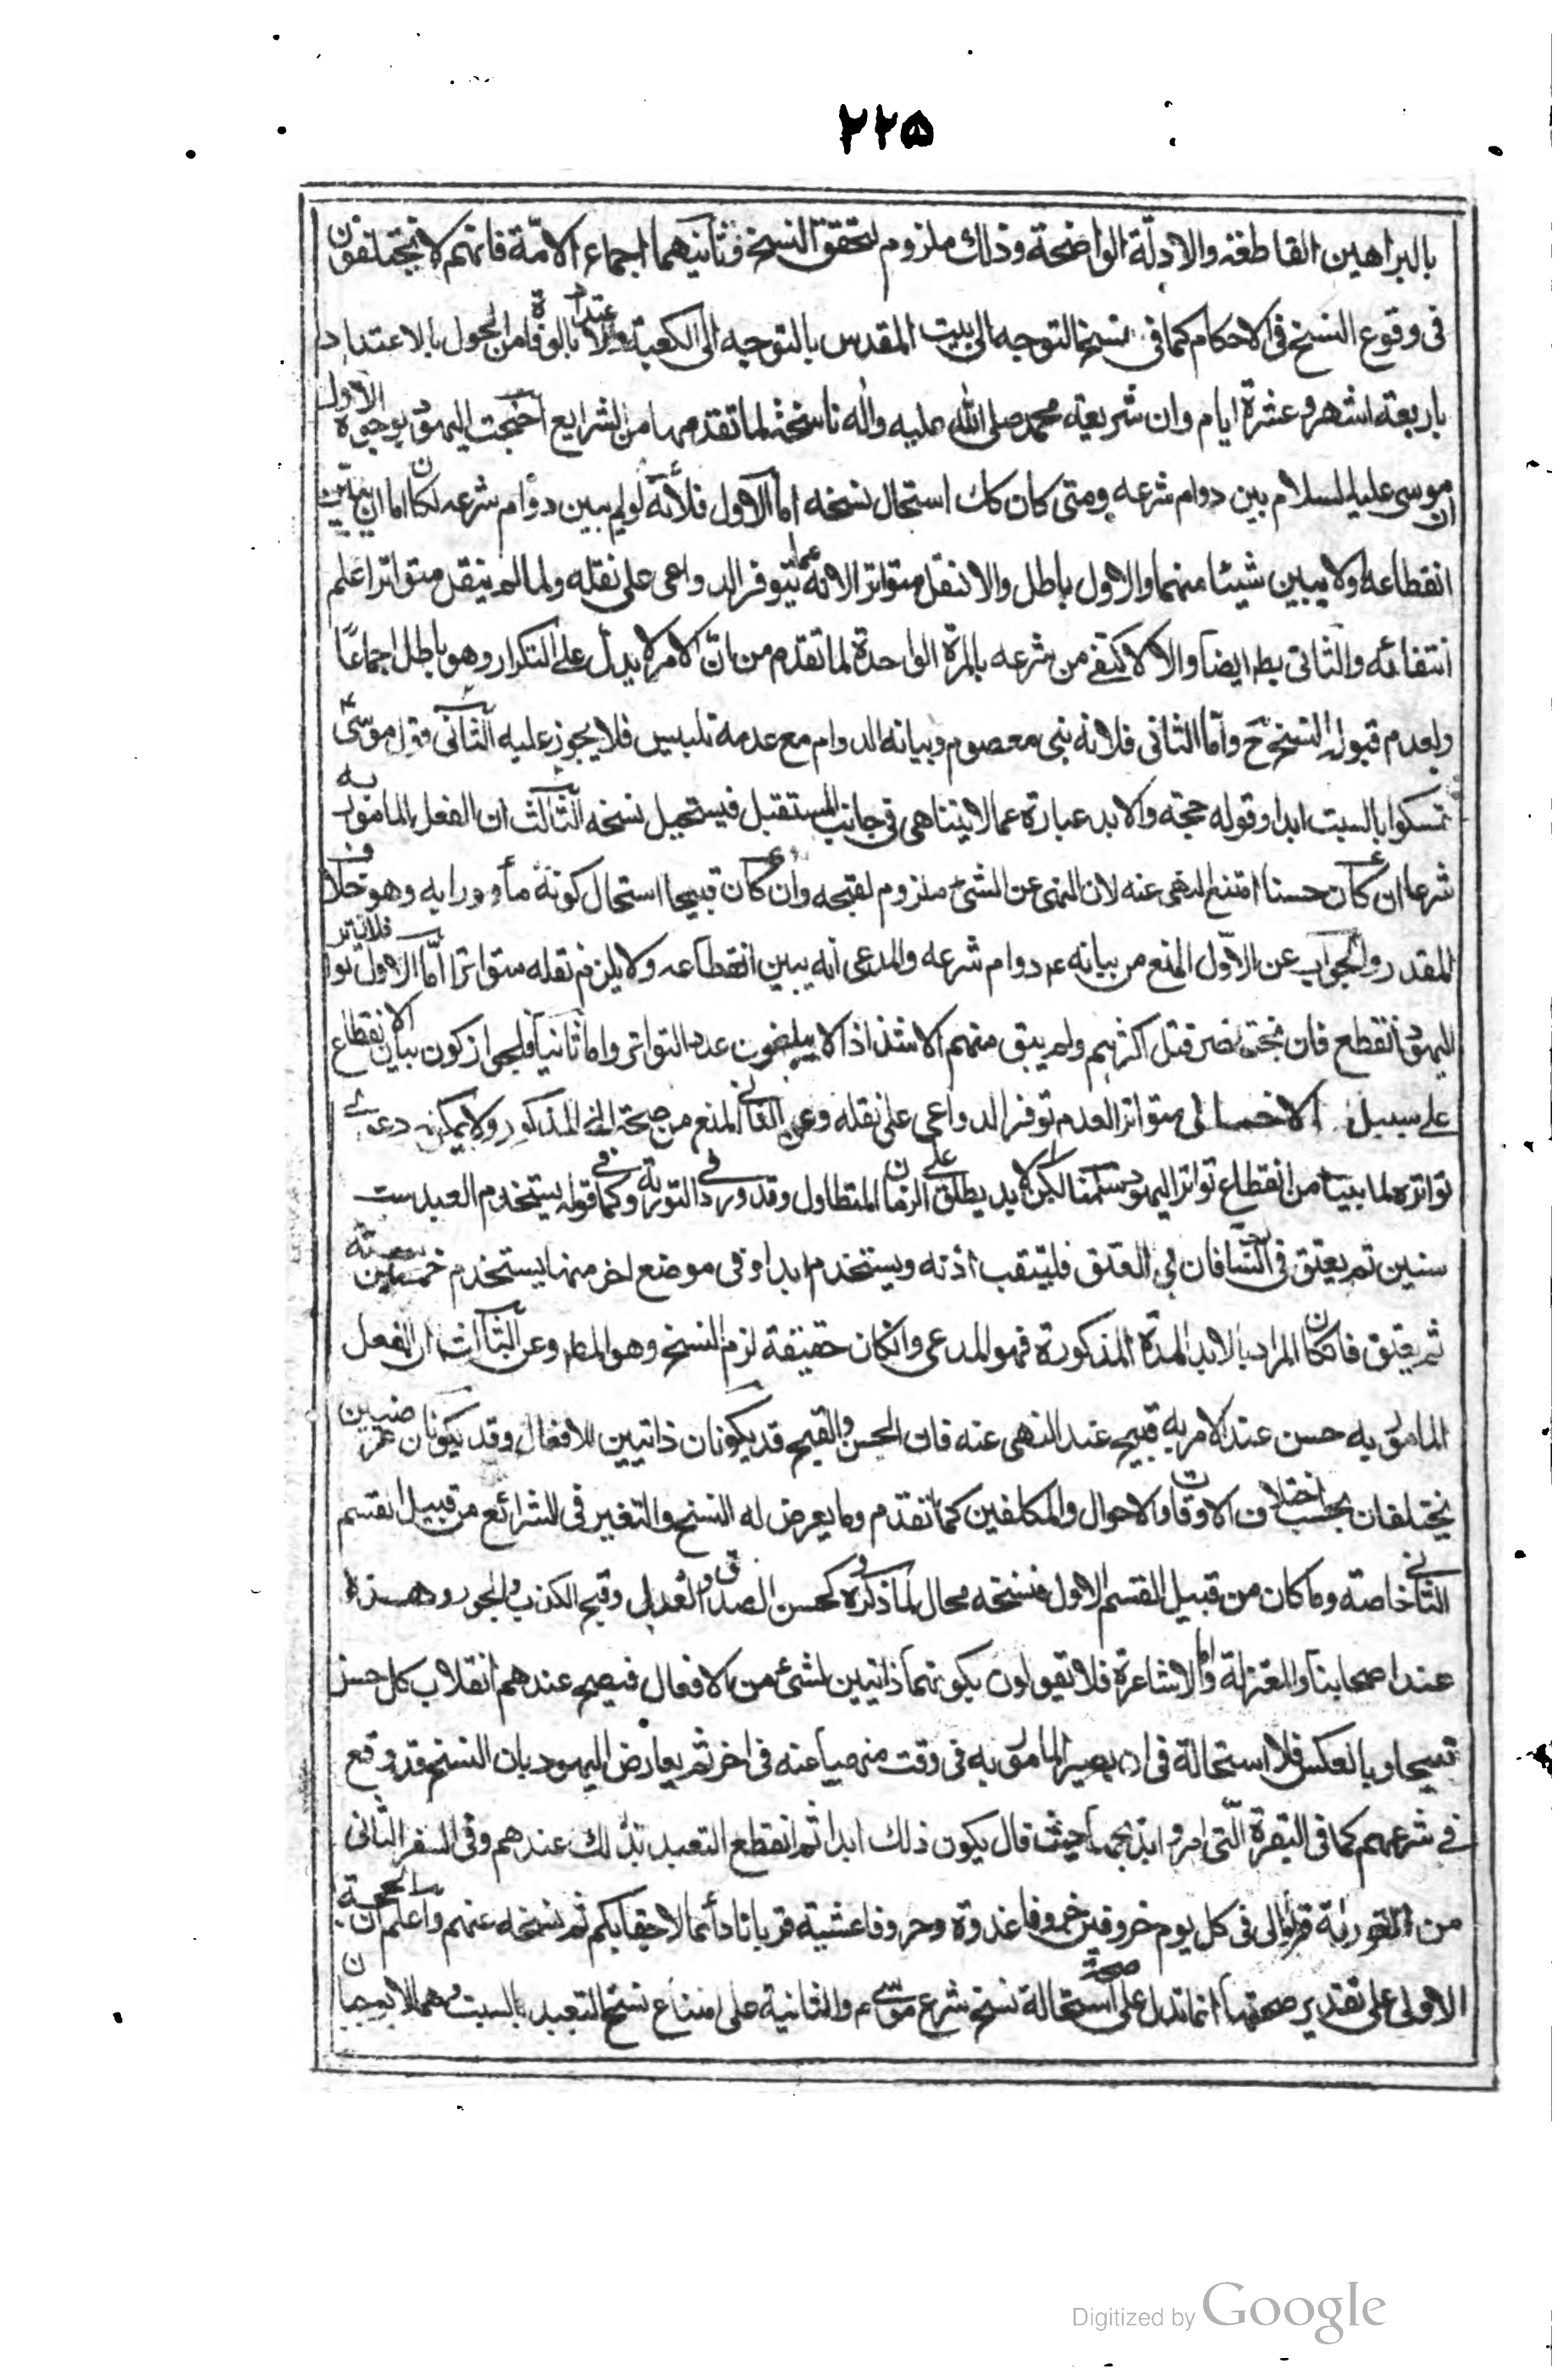 ۲۲۵
بالبراهين القاطعة والادلّة الواضحة وذلك ملزوم لتحقق النسخ وثانيهما اجماع الامّة فانهم لا يختلفون
فى وقوع النسخ فى الاحكام كما فى نسخ التوجه الى بيت المقدس بالتوجيه الى الكعبة والاعتداد بالوفاة من الحول بالاعتداد
باربعة اشهر وعشرة ايام وان شريعة محمد صلى الله عليه واله ناسخة لما تقدمها من الشرايع احتجت اليهود بوجوه الاول
ان موسى عليه السلام بين دوام شرعه ومتى كان كك استحال نسخه اما الاول فلأنه لو لم يبين دوام شرعه لكان اما ان يبين
انقطاعه ولا يبين شيئا منهما والاول باطل والا لنقل متواترا لانه مما يتوفر الدواعى على نقله ولما لم ينقل متواترا علم
انتفائه والثانى بط ايضا والا لاكتفى من شرعه بالمرة الواحدة لما تقدم من انّ الامر لا يدل على التكرار وهو باطل اجماعًا
ولعدم قبوله النسخ ح وأما الثانى فلانه نبى معصوم وبيانه الدوام مع عدمه تلبيس فلا يجوز عليه الثانى قول موسى ع
تمسكوا بالسبت ابدا وقوله حجة والابد عبارة عما لا يتناهى فى جانب المستقبل فيستحيل نسخه الثالث ان الفعل المامور به
شرعا ان كان حسنا امتنع النهى عنه لان النهى عن الشئ ملزوم لقبحه وان كان قبيحا استحال كونه مأمورا به وهو خلاف
المقدر والجواب عن الاوّل المنع من بيانه ع دوام شرعه والمدعى انه يبين انقطاعه ولا يلزم نقله متواترا امّا الاول فلان تواتر
اليهود انقطع فان بخت نصر قتل اكثرهم ولم يبق منهم الا شذاذ لا يبلغون عدد التواتر واما ثانيا فلجواز كون بيان الانقطاع
على سبيل الاجمال متواترا لعدم توفر الدواعى على نقله وعن الثانى المنع من صحة المذكور ولا يمكن دعوى
تواتره لما بينا من انقطاع تواتر اليهود سلمنا لكن الابد يطلق على الزمان المتطاول وقد ورد فى التورية وكما قوله يستخدم العبد ست
سنين ثم يعتق فى السابعة فان ابى العتق فليثقب اذنه ويستخدم ابدا وفى موضع اخر منها يستخدم خمسين سنة
ثم يعتق فان كان المراد بالابد المدة المذكورة فهو المدعى وان كان حقيقة لزم النسخ وهو المط وعن الثالث ان الفعل
المامور به حسن عند الامر به قبيح عند النهى عنه فان الحسن والقبح قد يكونان ذاتيين للافعال وقد يكونان عرضيين
يختلفان بحسب اختلاف الاوقات والاحوال والمكلفين كما تقدم وما يعرض له النسخ والتغير فى الشرائع من قبيل القسم
الثانى خاصة وما كان من قبيل القسم الاول فنسخه محال لما ذكروه كحسن الصدق والعدل وقبح الكذب والجور وهذا
عند اصحابنا والمعتزلة واما الاشاعرة فلا يقولون بكونهما ذاتيين لشئ من الافعال فيصح عندهم انقلاب كل حسن
قبيحا وبالعكس فلا استحالة فى ان يصير المامور به فى وقت منهيا عنه فى اخر ثم يعارض اليهود بان النسخ قد وقع
فى شرعهم كما فى البقرة الّتى امروا بذبحها حيث قال يكون ذلك ابدا ثم انقطع التعبد بذلك عندهم وفى السفر الثانى
من التورية قربوا الى فى كل يوم خروفين خروفا غدوة وخروفا عشية قربانا دائما لاحقابكم ثم نسخه عنهم واعلم ان الحجة
الاولى على تقدير صحتها انما تدل على استحالة نسخ شرع موسى ع والثانية على امتناع نسخ التعبد بالسبت وهما لا يوجبان
Digitized by Google